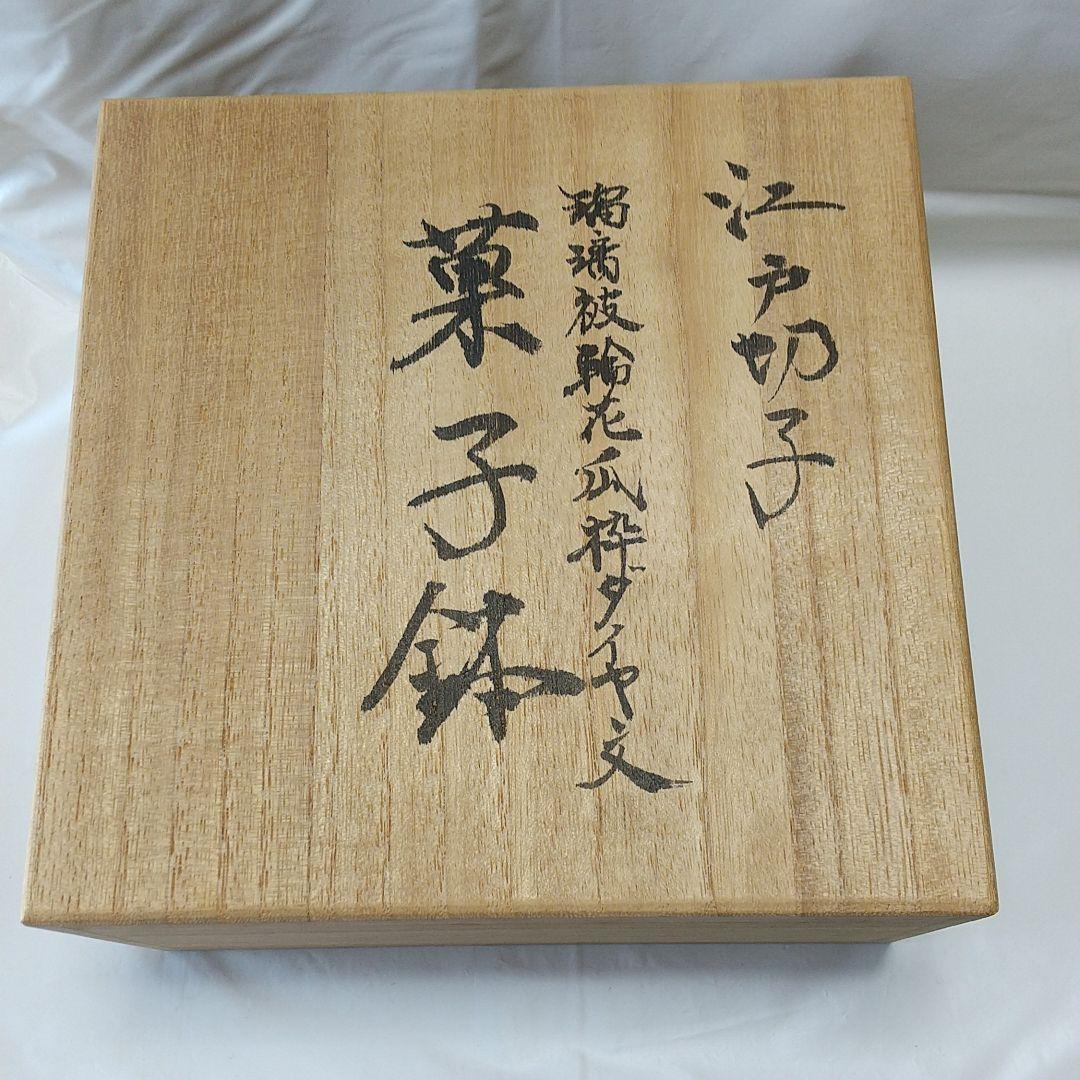 江戸切子
瑠璃被輪花瓜枠ダイヤ文
菓子鉢